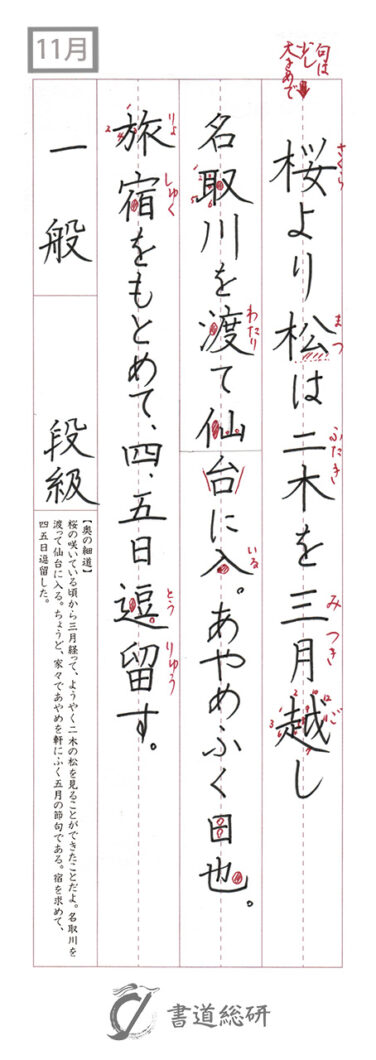 11月
句は
少し
大きめで
桜より松は二木を三月越し
さくら
まつ
ふたき
み
つき
ご
名取川を渡て仙台に入。あやめふく日也。
わたり
いる
旅宿をもとめて、四、五日逗留す。
りょ
しゅく
とう
りゅう
一般 段級
【奥の細道】
桜の咲いている頃から三月経って、ようやく二木の松を見ることができたことだよ。名取川を
渡って仙台に入る。ちょうど、家々であやめを軒にふく五月の節句である。宿を求めて、
四五日逗留した。
書道総研